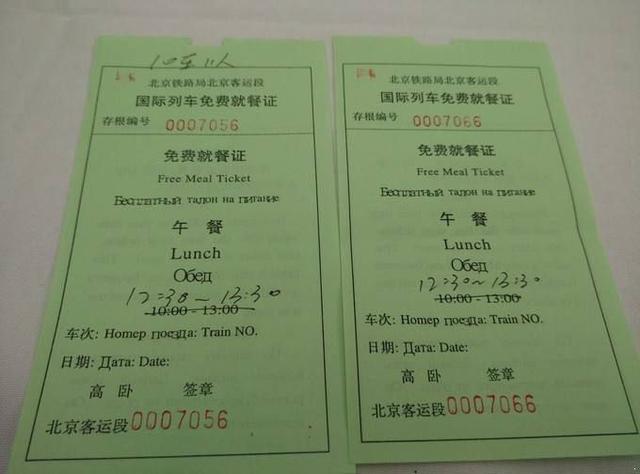 10车11人
北京铁路局北京客运段
国际列车免费就餐证
存根编号 0007056
免费就餐证
Free Meal Ticket
Бесплатный талон на питание
午 餐
Lunch
Обед
12:30～13:30
10:00 - 13:00
车次: Номер поезда: Train NO.
日期: Дата: Date:
高 卧 签章
北京客运段0007056
北京铁路局北京客运段
国际列车免费就餐证
存根编号 0007066
免费就餐证
Free Meal Ticket
Бесплатный талон на питание
午 餐
Lunch
Обед
12:30～13:30
10:00 - 13:00
车次: Номер поезда: Train NO.
日期: Дата: Date:
高 卧 签章
北京客运段0007066